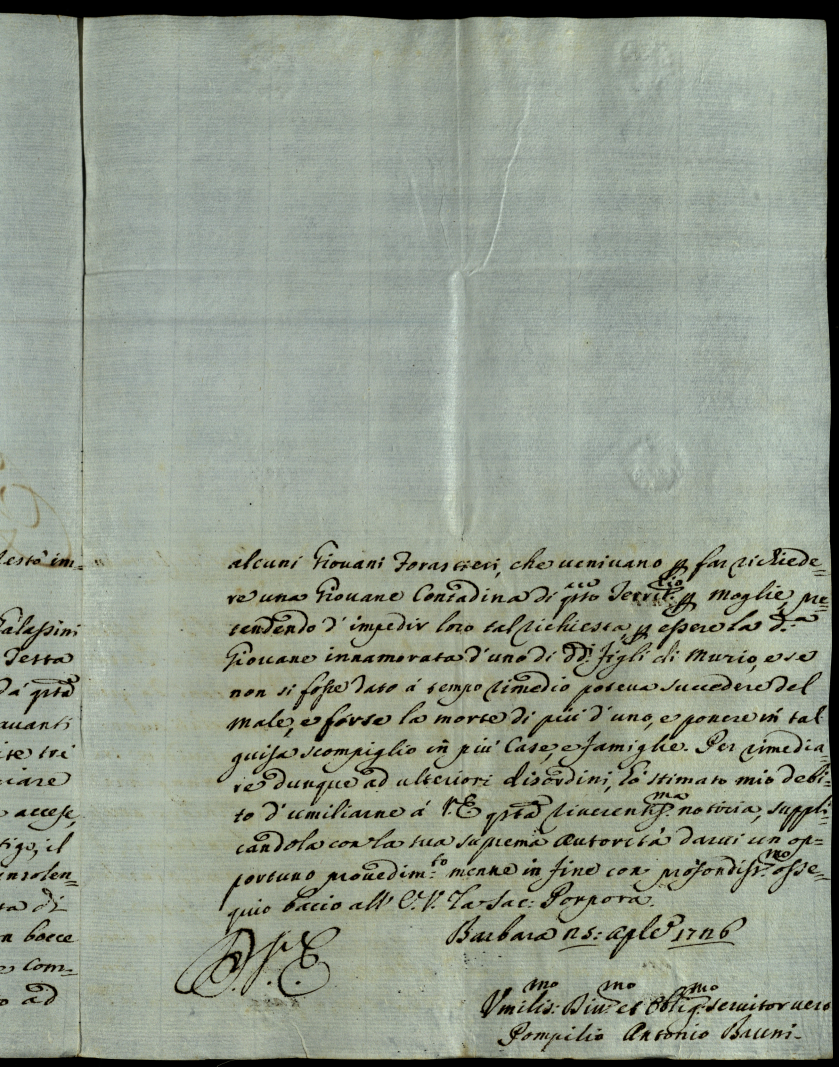 lesto im=
Galassini
Testa
da qsta
avanti
ite tri
ciare
e accese,
tigo, il
insolen=
ta di
n boece
e com=
o ad
alcuni Giovani Forastieri, che venivano p far richiede=
re una Giovane Contadina di qsto Territ.rio p moglie, pre=
tendendo d'impedir loro tal richiesta, p essere la d.a
Giovane innamorata d'uno di dd.i figli di Muzio, e se
non si fosse dato á tempo rimedio poteva succedere del
male, e forse la morte di più d'uno, e ponere in tal
guisa scompiglio in più Case, e famiglie. Per rimedia=
re dunque ad ulteriori disordini, hò stimato mio debi=
to d'umiliarne á V.E qsta riverentis.ma notizia, suppli=
candola con la sua suprema autorità darvi un op=
portuno provedim.to mentre in fine con profondiss.mo osse=
quio bacio all' E.V. la Sac: Porpora.
Barbara 25: aple 1726
D.V.E.
Vmilis.mo Div.mo et Obligs.mo servitor vero
Pompilio Antonio Bruni